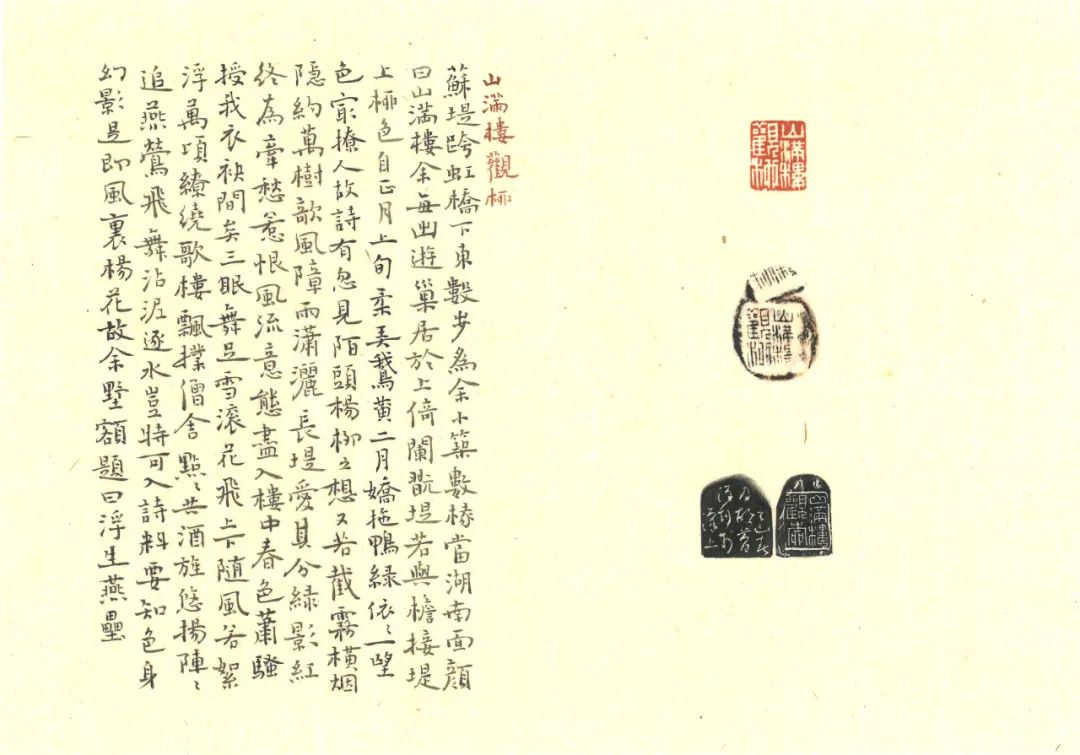 山滿樓觀桺
蘇堤跨虹橋下東數步為余小築數椽當湖南面顏
曰山滿樓余每出遊巢居於上倚闌翫堤若與檐接堤
上桺色自正月上旬柔弄鵝黃二月嬌拖鴨綠依〻一望
色㝡撩人故詩有忽見陌頭楊柳之想又若截霧橫烟
隱約萬樹欹風障雨瀟灑長堤愛其分綠影紅
終為牽愁惹恨風流意態盡入樓中春色蕭騷
授我衣袂間矣三眠舞足雪滾花飛上下随風若絮
浮萬頃繚繞歌樓飄撲僧舍點〻共酒旆悠揚陣〻
追燕鶯飛舞沾泥逐水豈特可入詩料要知色身
幻影是即風裏楊花故余墅額題曰浮生燕壘
山滿樓
觀桺
山滿樓
觀桺